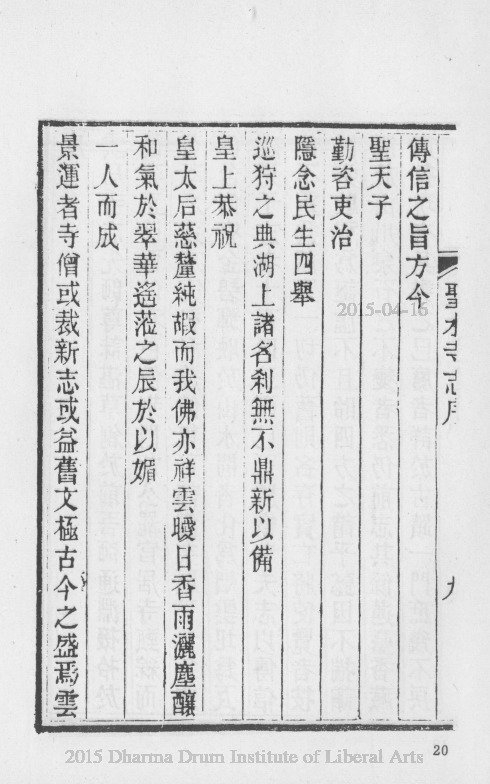 傳信之旨方今
聖天子
勤咨吏治
隱念民生四舉
巡狩之典湖上諸名刹無不鼎新以備
皇上恭祝
皇太后慈釐純嘏而我佛亦祥雲曖日香雨灑塵釀
和氣於翠華遙蒞之辰於以媚
一人而成
景運者寺僧或裁新志或益舊文極古今之盛焉雲
2015-04-16
20
2015 Dharma Drum Institute of Liberal Arts